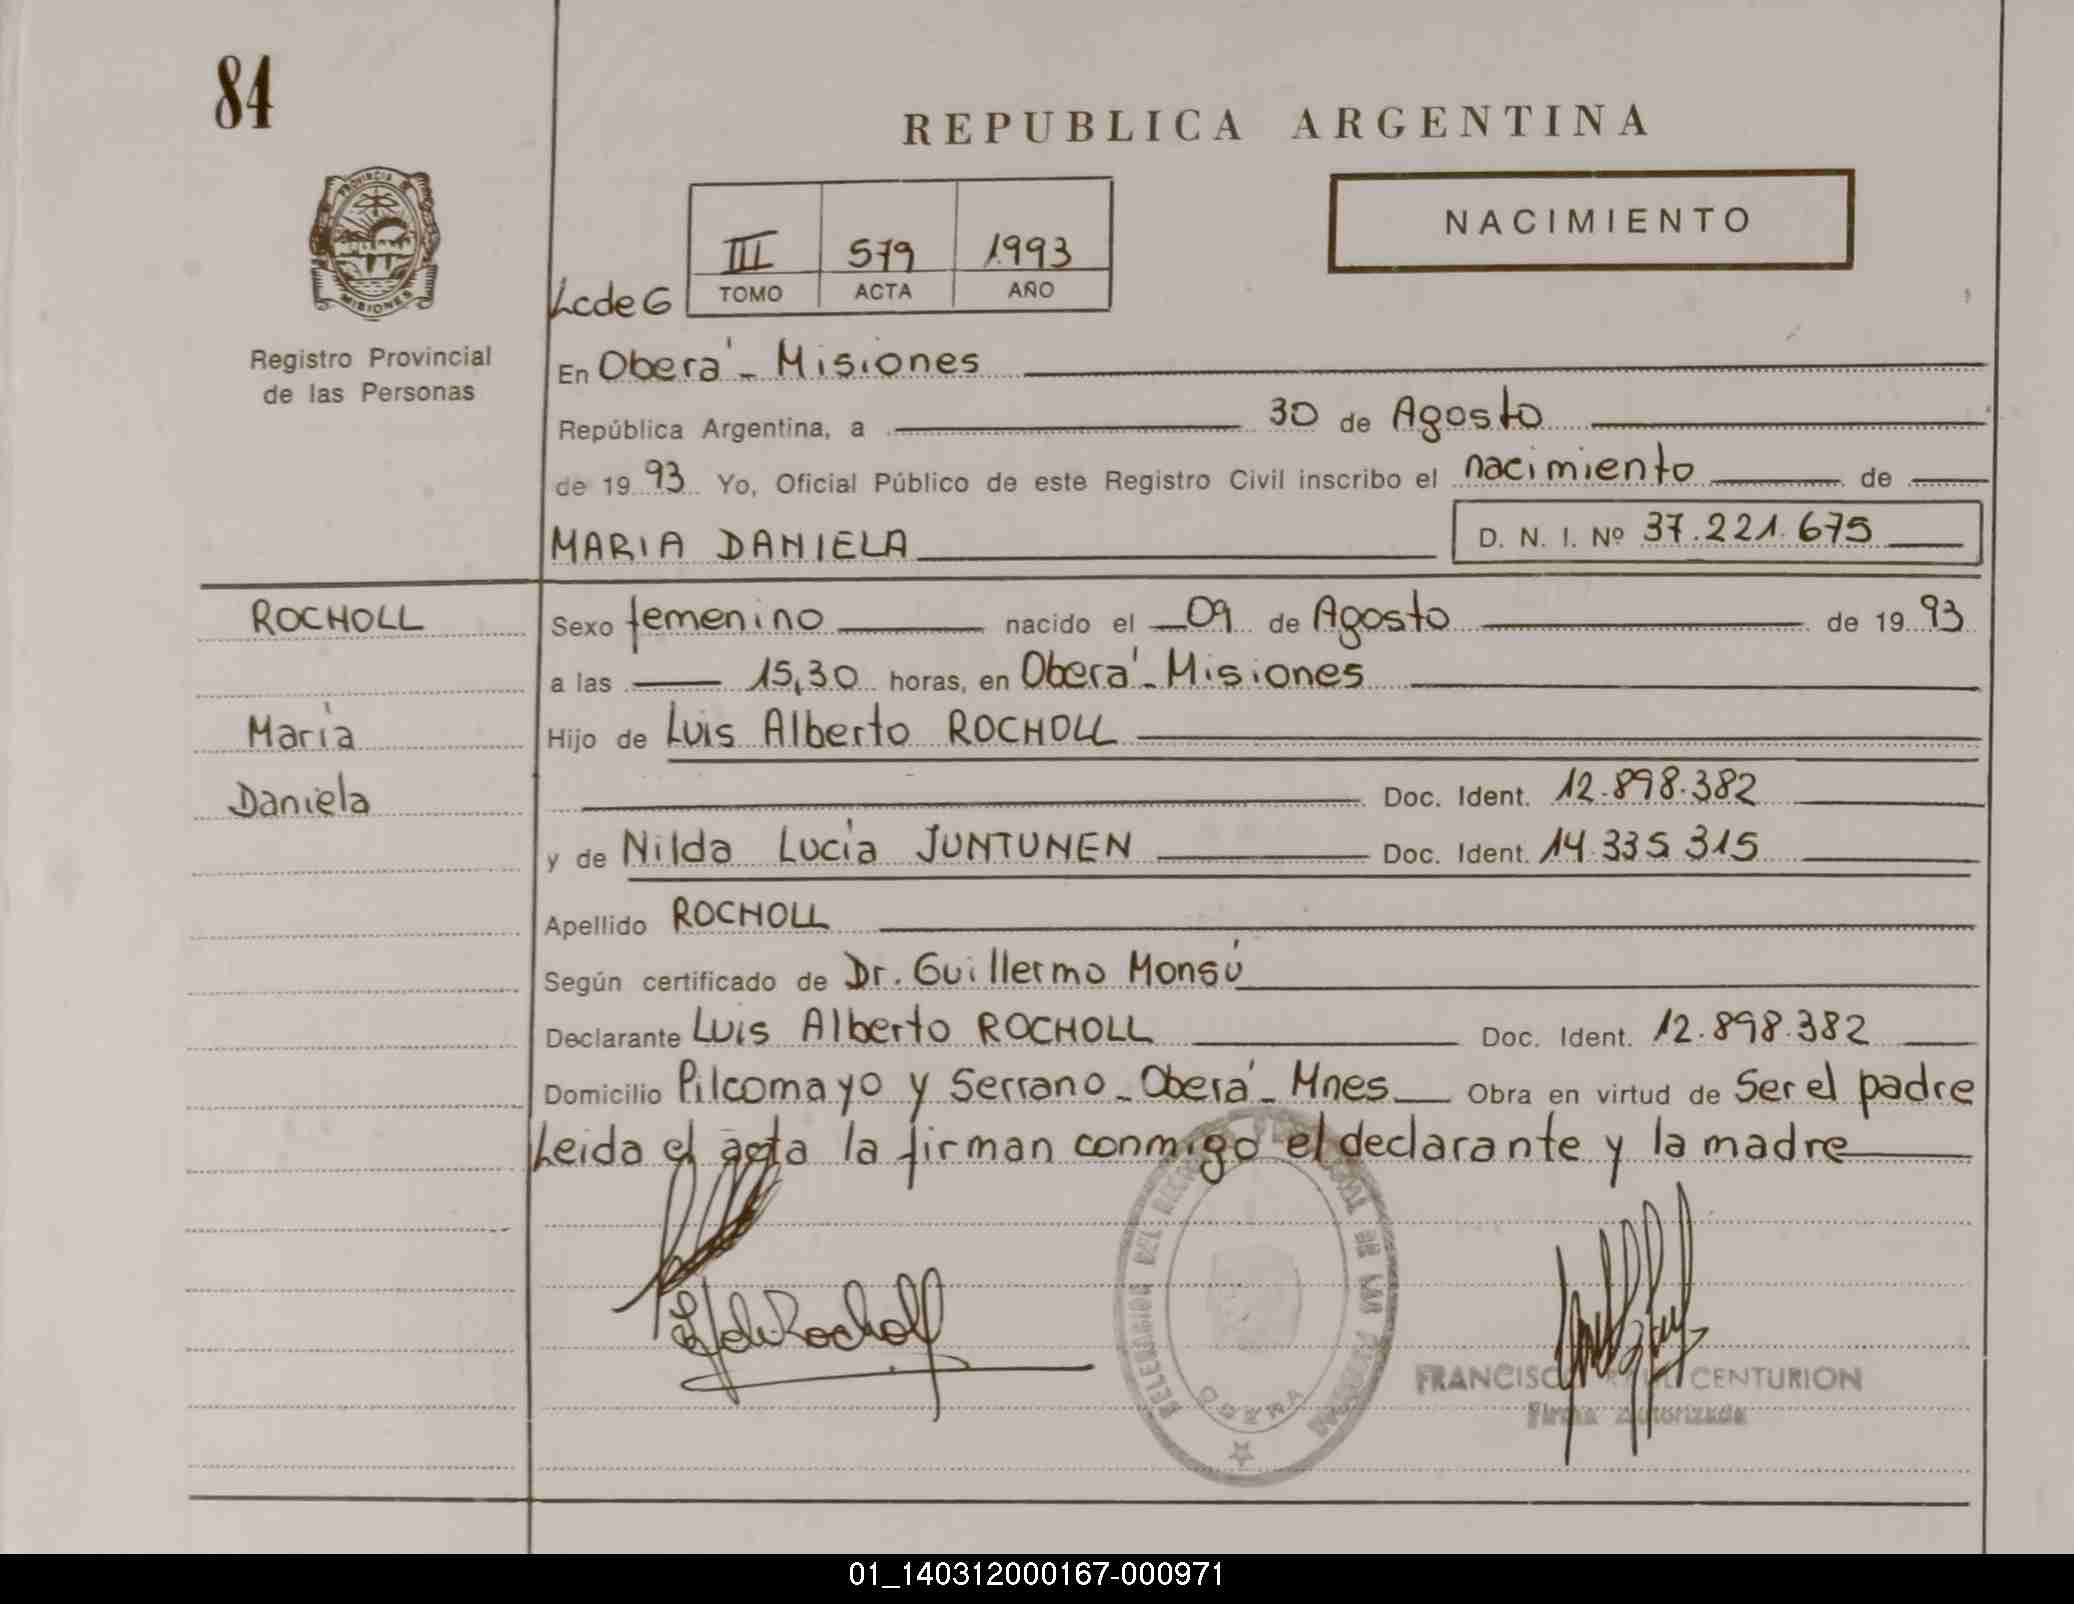 84
REPUBLICA ARGENTINA
NACIMIENTO
PROVINCIA DE
MISIONES
III 579 1993
TOMO ACTA AÑO
LcdeG
Registro Provincial
de las Personas
En Oberá - Misiones
República Argentina, a 30 de Agosto
de 1993 Yo, Oficial Público de este Registro Civil inscribo el nacimiento de
MARIA DANIELA D. N. I. Nº 37.221.675
ROCHOLL
María
Daniela
Sexo femenino nacido el 09 de Agosto de 1993
a las 15,30 horas, en Oberá - Misiones
Hijo de Luis Alberto ROCHOLL
Doc. Ident. 12.898.382
y de Nilda Lucía JUNTUNEN Doc. Ident. 14.335.315
Apellido ROCHOLL
Según certificado de Dr. Guillermo Monsú
Declarante Luis Alberto ROCHOLL Doc. Ident. 12.898.382
Domicilio Pilcomayo y Serrano - Oberá - Mnes Obra en virtud de Ser el padre
Leida el acta la firman conmigo el declarante y la madre
de Rocholl
DE LAS PERSONAS
FRANCISCO RAUL CENTURION
Firma Autorizada
01_140312000167-000971